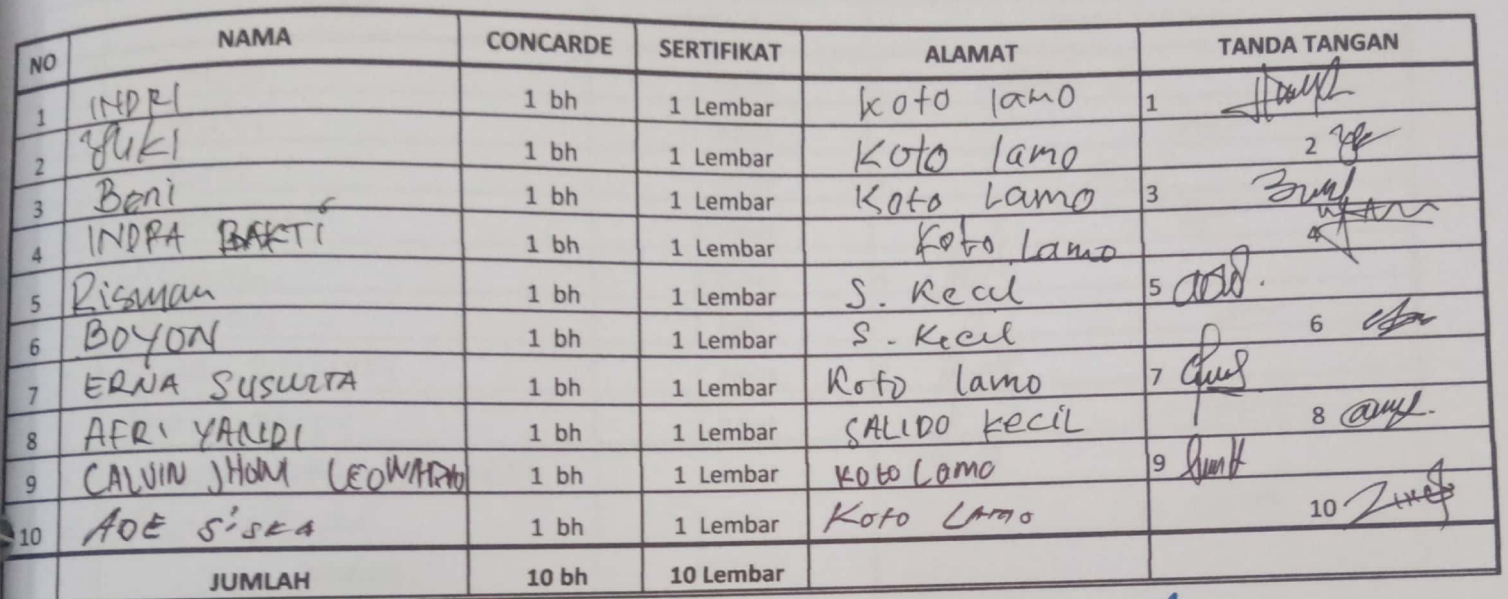 NO NAMA CONCARDE SERTIFIKAT ALAMAT TANDA TANGAN
1 INDRI 1 bh 1 Lembar Koto lamo 1
2 YUKI 1 bh 1 Lembar Koto lamo 2
3 Beni 1 bh 1 Lembar Koto Lamo 3
4 INDRA BAKTI 1 bh 1 Lembar Koto Lamo 4
5 Risman 1 bh 1 Lembar S. Kecil 5
6 BOYON 1 bh 1 Lembar S. Kecil 6
7 ERNA 1 bh 1 Lembar Koto lamo 7
8 AFRI YANDI 1 bh 1 Lembar SALIDO KECIL 8
9 CALVIN JHON 1 bh 1 Lembar Koto Lamo 9
10 ADE SISKA 1 bh 1 Lembar Koto LAmo 10
JUMLAH 10 bh 10 Lembar